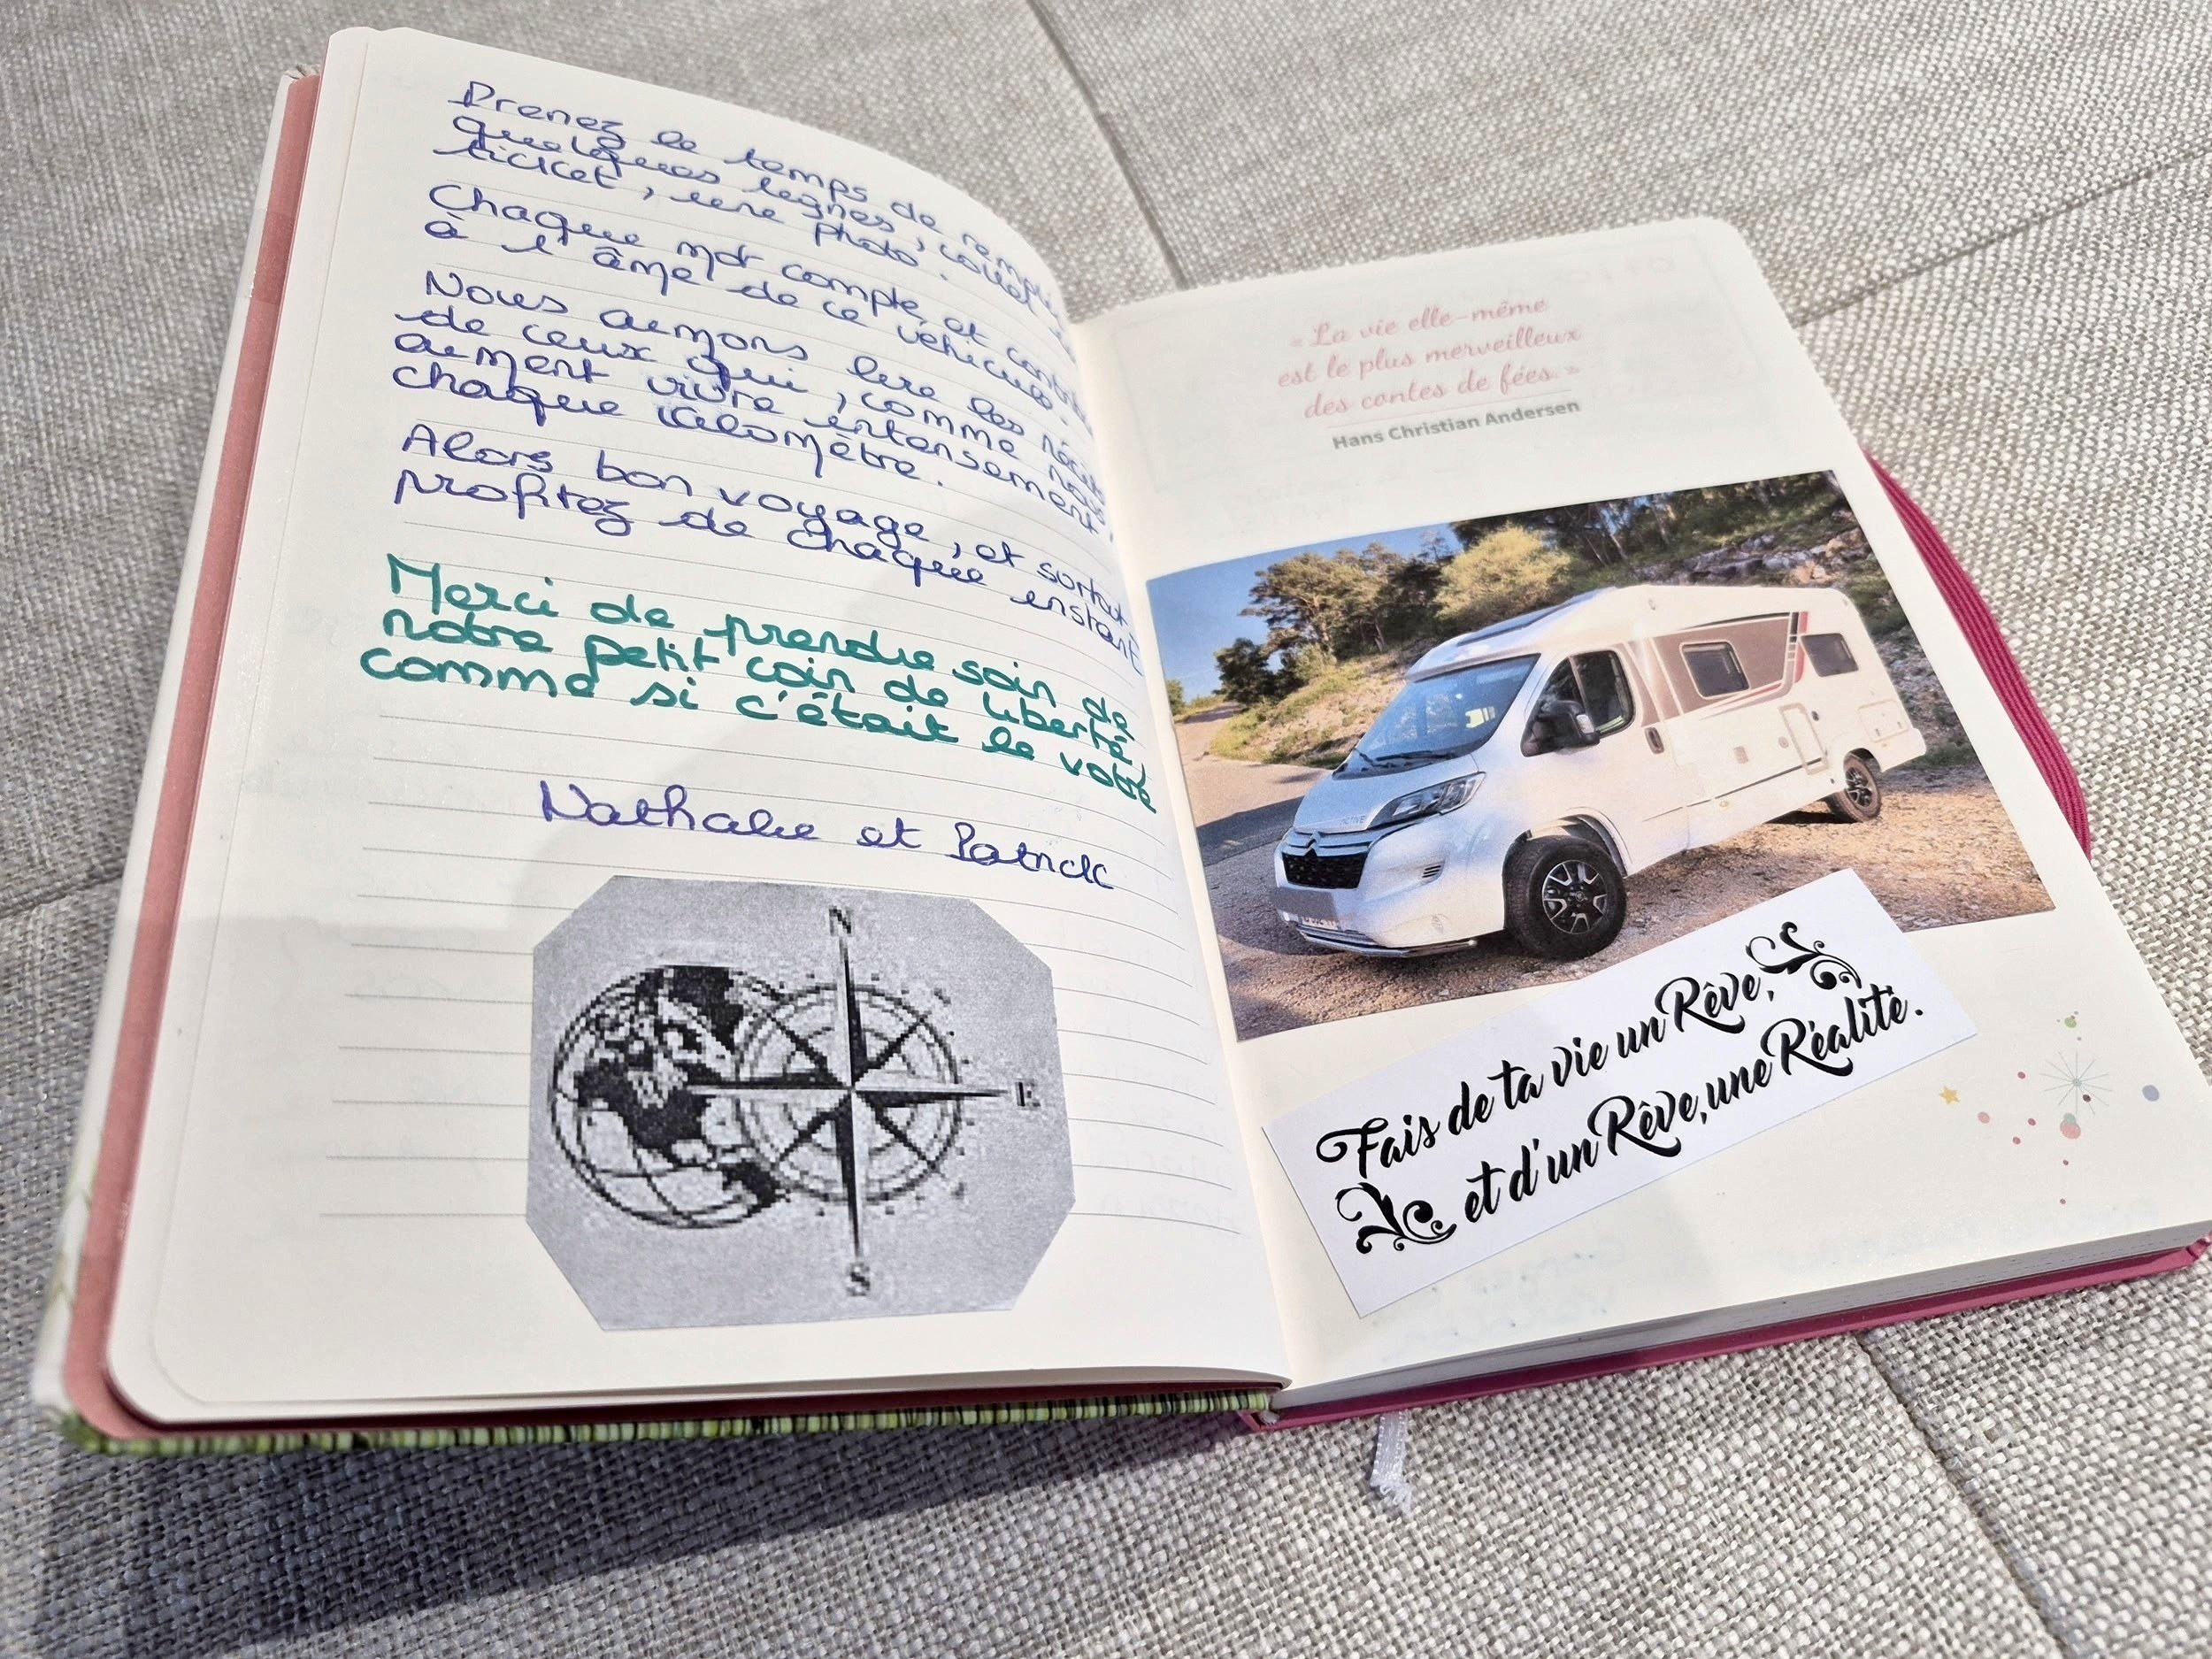 Prenez le temps de remplir
quelques lignes, coller
ticket, une photo.
Chaque mot compte, et contribue
à l'âme de ce véhicule.
Nous aimons lire les récits
de ceux qui, comme nous,
aiment vivre intensément
chaque kilomètre.
Alors bon voyage, et surtout
profitez de chaque instant
Merci de prendre soin de
notre petit coin de liberté,
comme si c'était le votre
Nathalie et Patrick
N
E
S
« La vie elle-même
est le plus merveilleux
des contes de fées. »
Hans Christian Andersen
Fais de ta vie un Rêve,
et d'un Rêve, une Réalité.